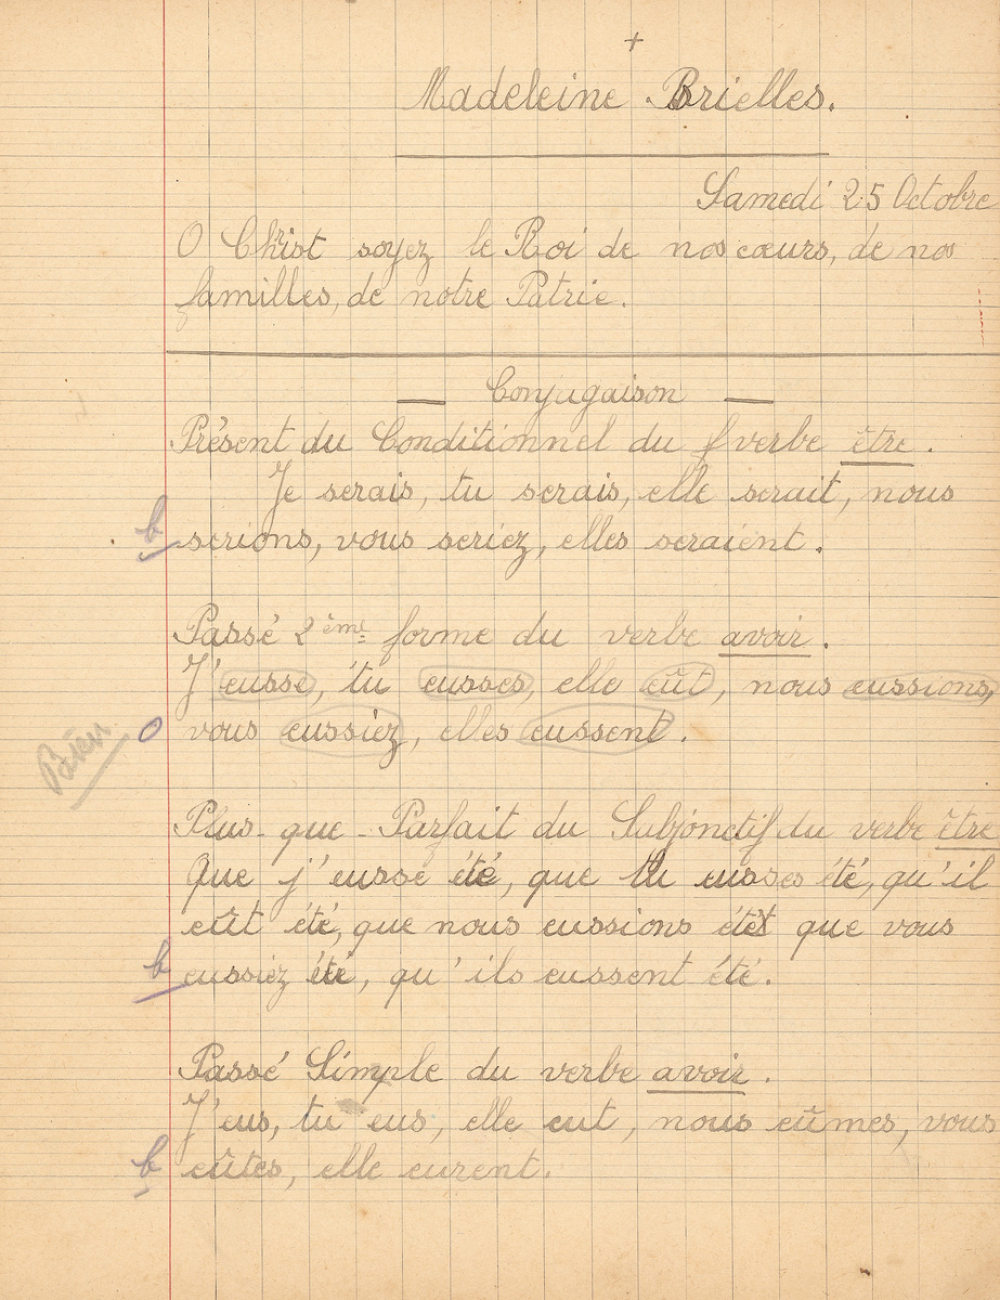 +
Madeleine Brielles.
Samedi 25 Octobre
O Christ soyez le Roi de nos cœurs, de nos
familles, de notre Patrie.
— Conjugaison —
Présent du Conditionnel du f verbe être.
Je serais, tu serais, elle serait, nous
b serions, vous seriez, elles seraient.
Passé 2ème forme du verbe avoir.
J'eusse, tu eusses, elle eût, nous eussions,
0 vous eussiez, elles eussent.
Bien
Plus-que-Parfait du Subjonctif du verbe être
Que j'eusse été, que tu eusses été, qu'il
eût été, que nous eussions été que vous
b eussiez été, qu'ils eussent été.
Passé Simple du verbe avoir.
J'eus, tu eus, elle eut, nous eûmes, vous
b eûtes, elle eurent.